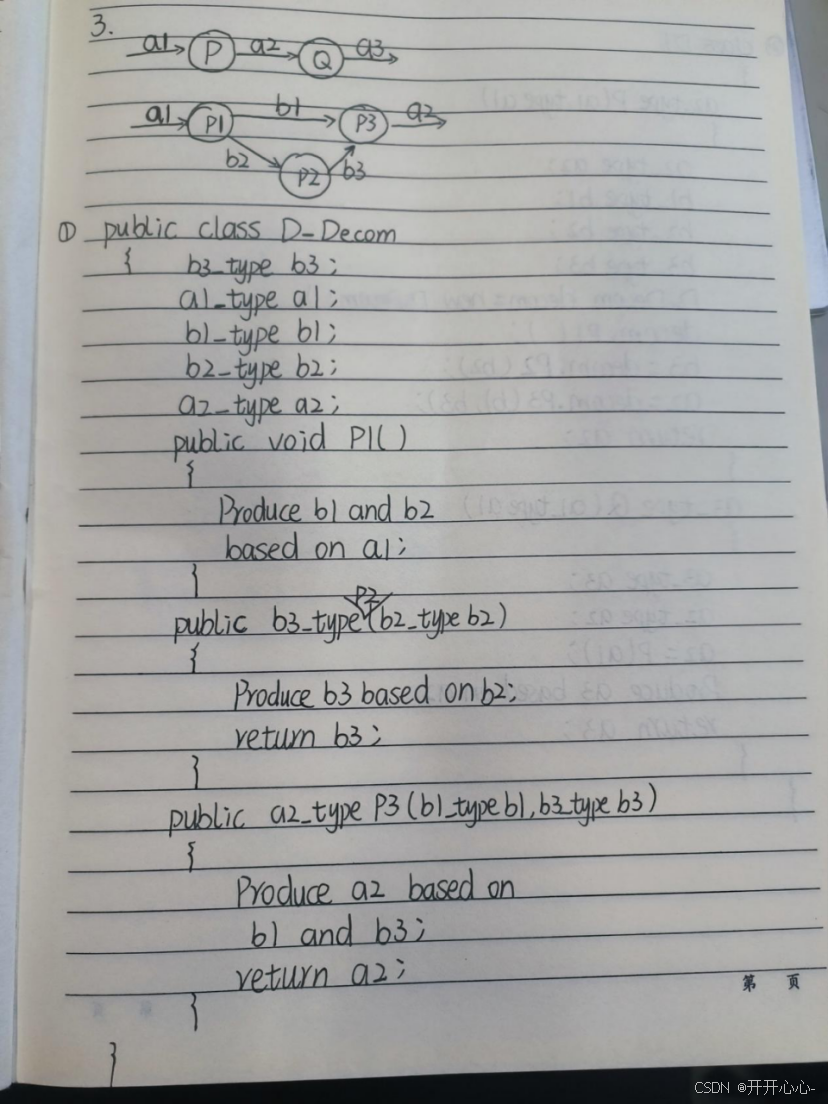 3.
a1 P a2 Q a3
a1 P1 b1 P3 a2
b2 P2 b3
① public class D-Decom
{ b3-type b3;
a1-type a1;
b1-type b1;
b2-type b2;
a2-type a2;
public void P1()
{
Produce b1 and b2
based on a1;
}
public b3-type P2(b2-type b2)
{
Produce b3 based on b2;
return b3;
}
public a2-type P3(b1-type b1, b3-type b3)
{
Produce a2 based on
b1 and b3;
return a2;
}
}
第 页
CSDN @开开心心-